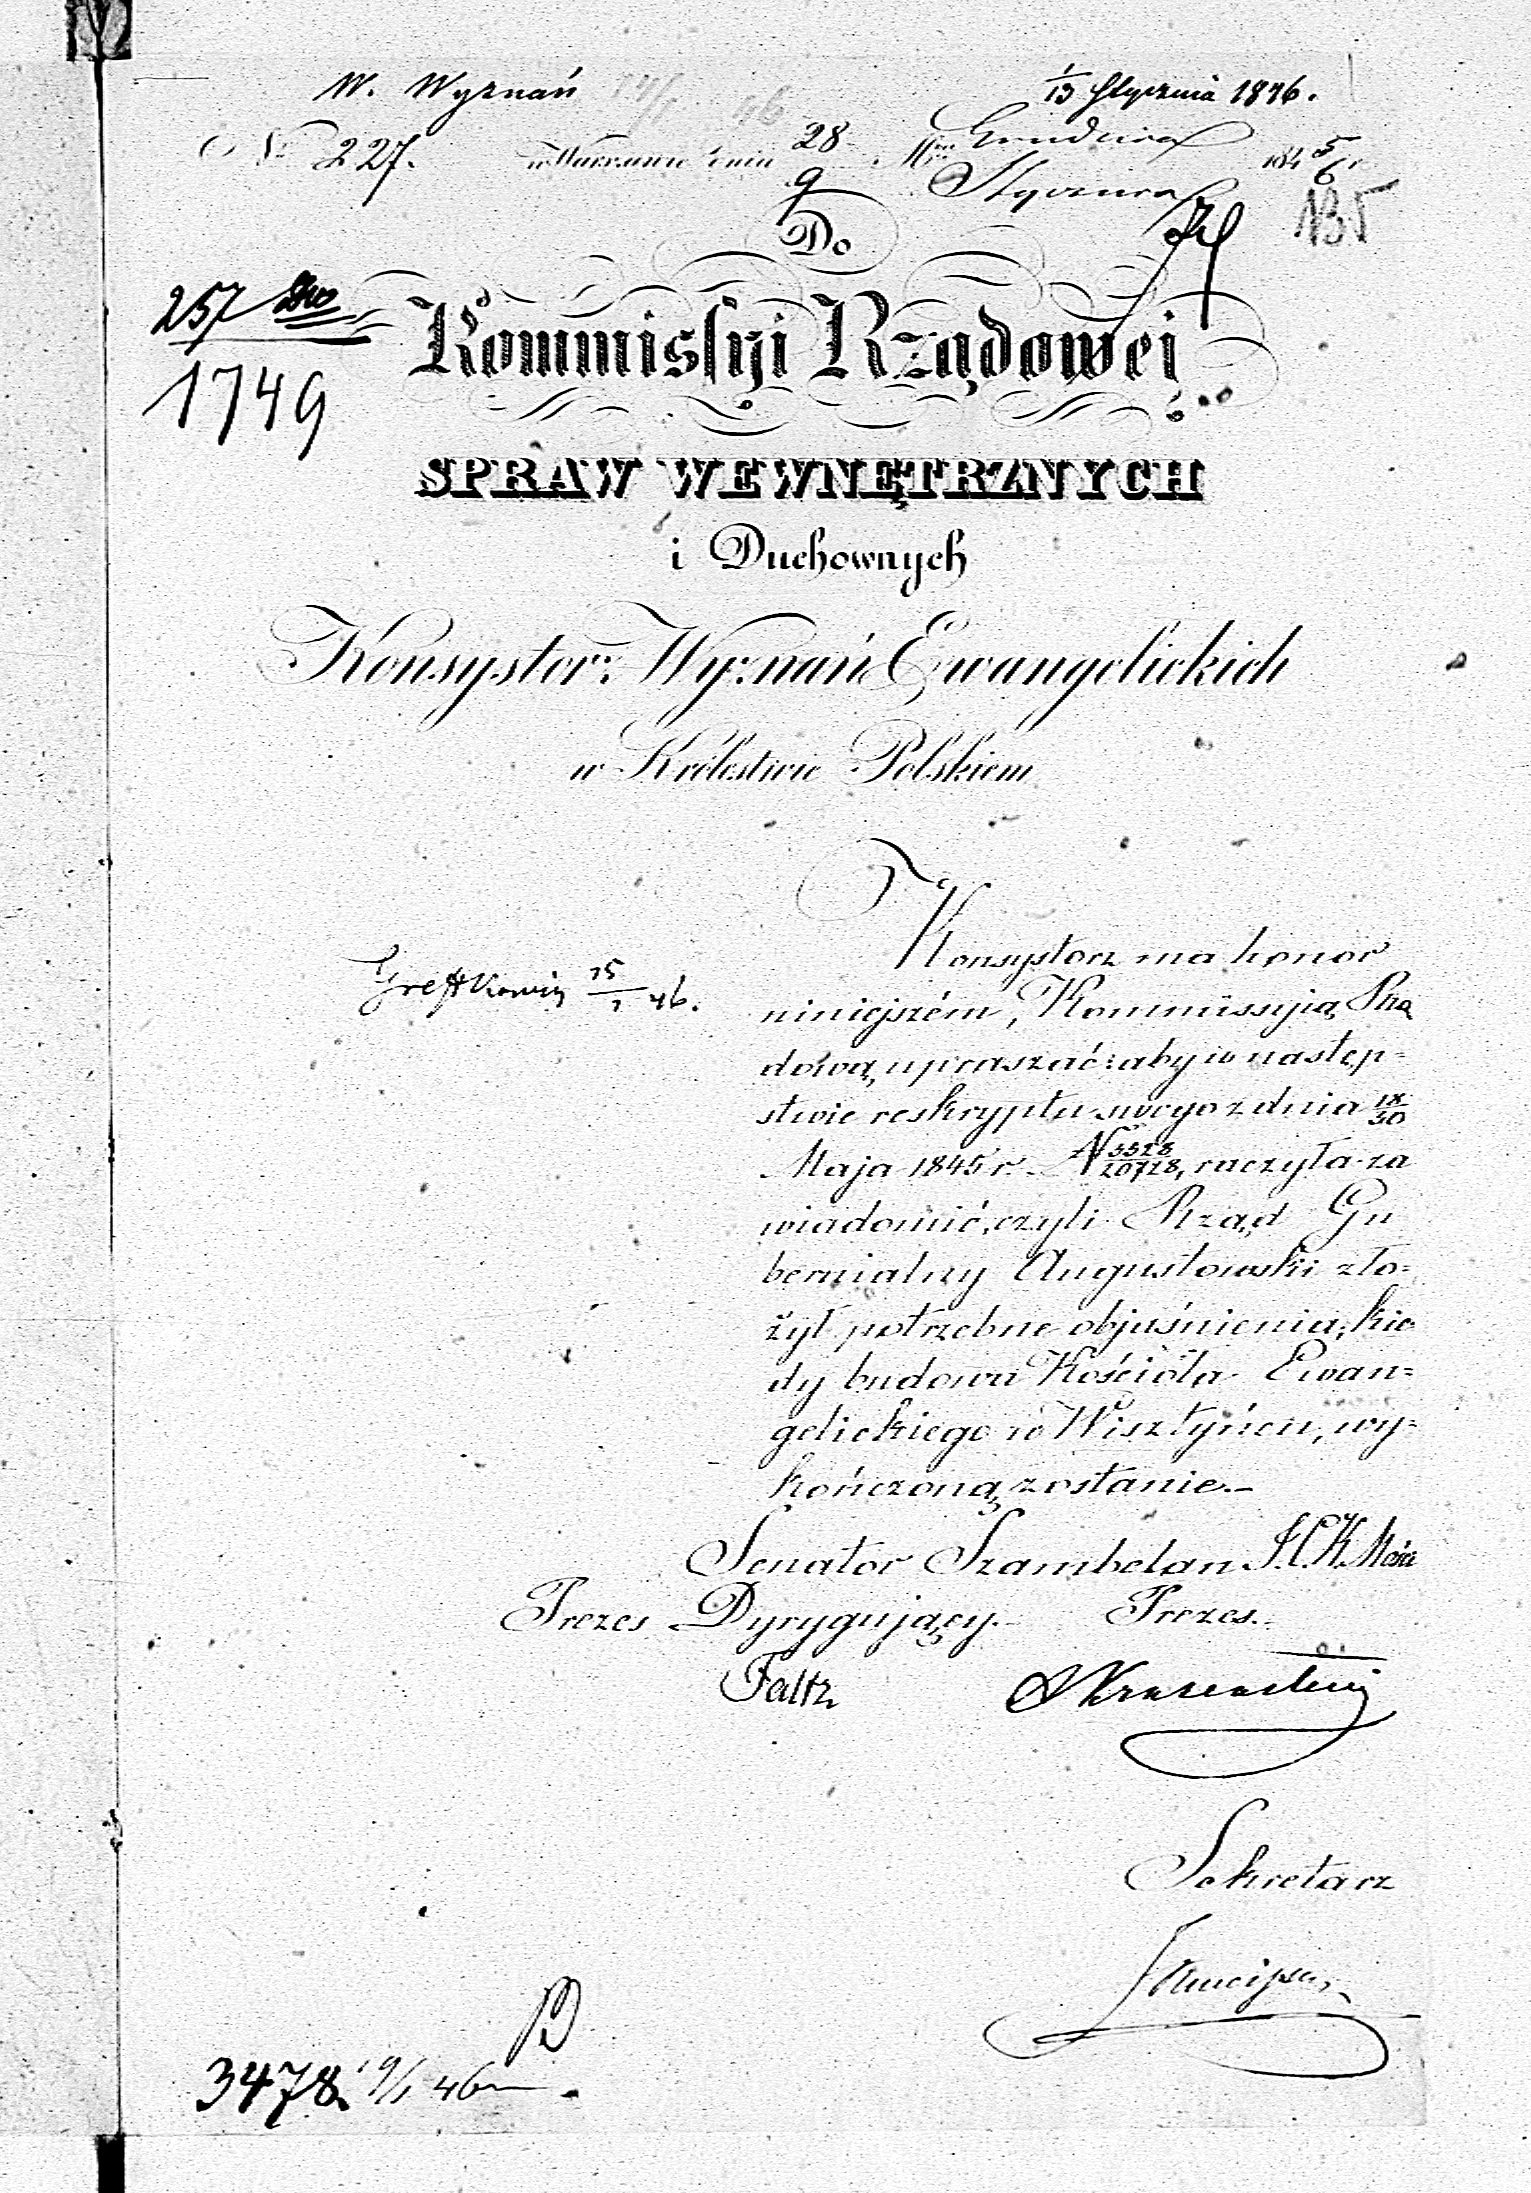 W. Wyznań
1/13 Stycznia 1846.
No 227. w Warszawie dnia 28/9 Mca Grudnia/Stycznia 184 5/6 r.
135
Do
257
1749
Kommissyi Rządowej
SPRAW WEWNĘTRZNYCH
i Duchownych
Konsystorz Wyznań Ewangelickich
w Królestwie Polskiem
Konsystorz ma honor
niniejszém, Kommissyią Rzą
dową, upraszać: aby w następ=
stwie reskryptu swego z dnia 18/30
Maja 1845 r. N 5528/20728, raczyła za
wiadomić, czyli Rząd Gu
bernialny Augustowski zło=
żył potrzebne objaśnienia, kie
dy budowa Kościoła Ewan=
gelickiego w Wisztyńcu, wy=
kończoną zostanie.–
15/1 46.
Senator Szambelan J.C.K.Mości
Prezes Dyrygujący. Prezes.
Faltz
Sekretarz
3478 19/1 46